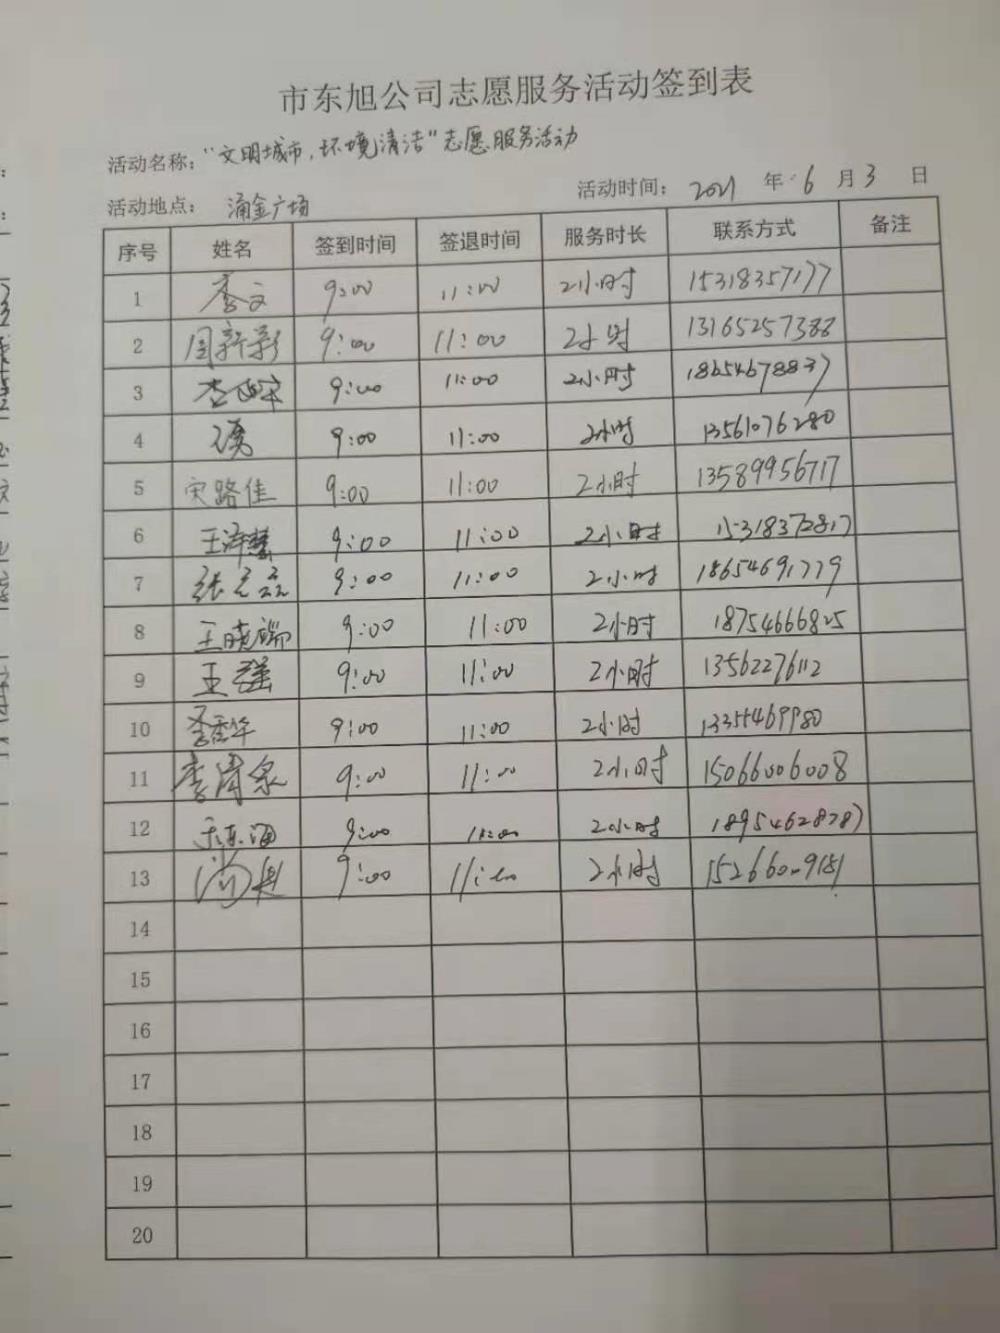 市东旭公司志愿服务活动签到表
活动名称："文明城市,环境清洁"志愿服务活动
活动时间：2021 年 6 月 3 日
活动地点：涌金广场
序号 姓名 签到时间 签退时间 服务时长 联系方式 备注
1 李文 9:00 11:00 2小时 15318357177
2 周新彩 9:00 11:00 2小时 13165257388
3 9:00 11:00 2小时 18654678837
4 9:00 11:00 2小时 13561076280
5 宋路佳 9:00 11:00 2小时 13589956717
6 王泽慧 9:00 11:00 2小时 15318372817
7 张元磊 9:00 11:00 2小时 18654691779
8 王晓瑞 9:00 11:00 2小时 18754666825
9 王瑶 9:00 11:00 2小时 13562276112
10 李香华 9:00 11:00 2小时 13355469980
11 李清泉 9:00 11:00 2小时 15066006008
12 9:00 11:00 2小时 18954628287
13 9:00 11:00 2小时 15266009181
14
15
16
17
18
19
20